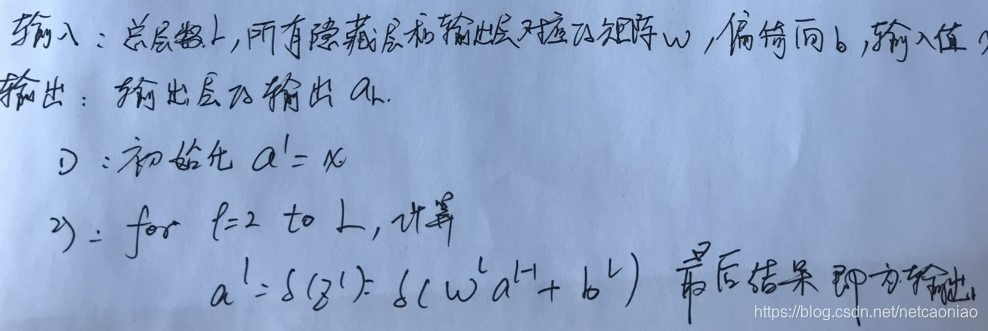 输入：总层数L，所有隐藏层和输出层对应的矩阵W，偏倚向b，输入值
输出：输出层的输出aL.
1)：初始化 a¹=x
2)：for l=2 to L，计算
aˡ=δ(zˡ)=δ(Wˡaˡ⁻¹+bˡ) 最后结果即为输出
https://blog.csdn.net/netcaoniao